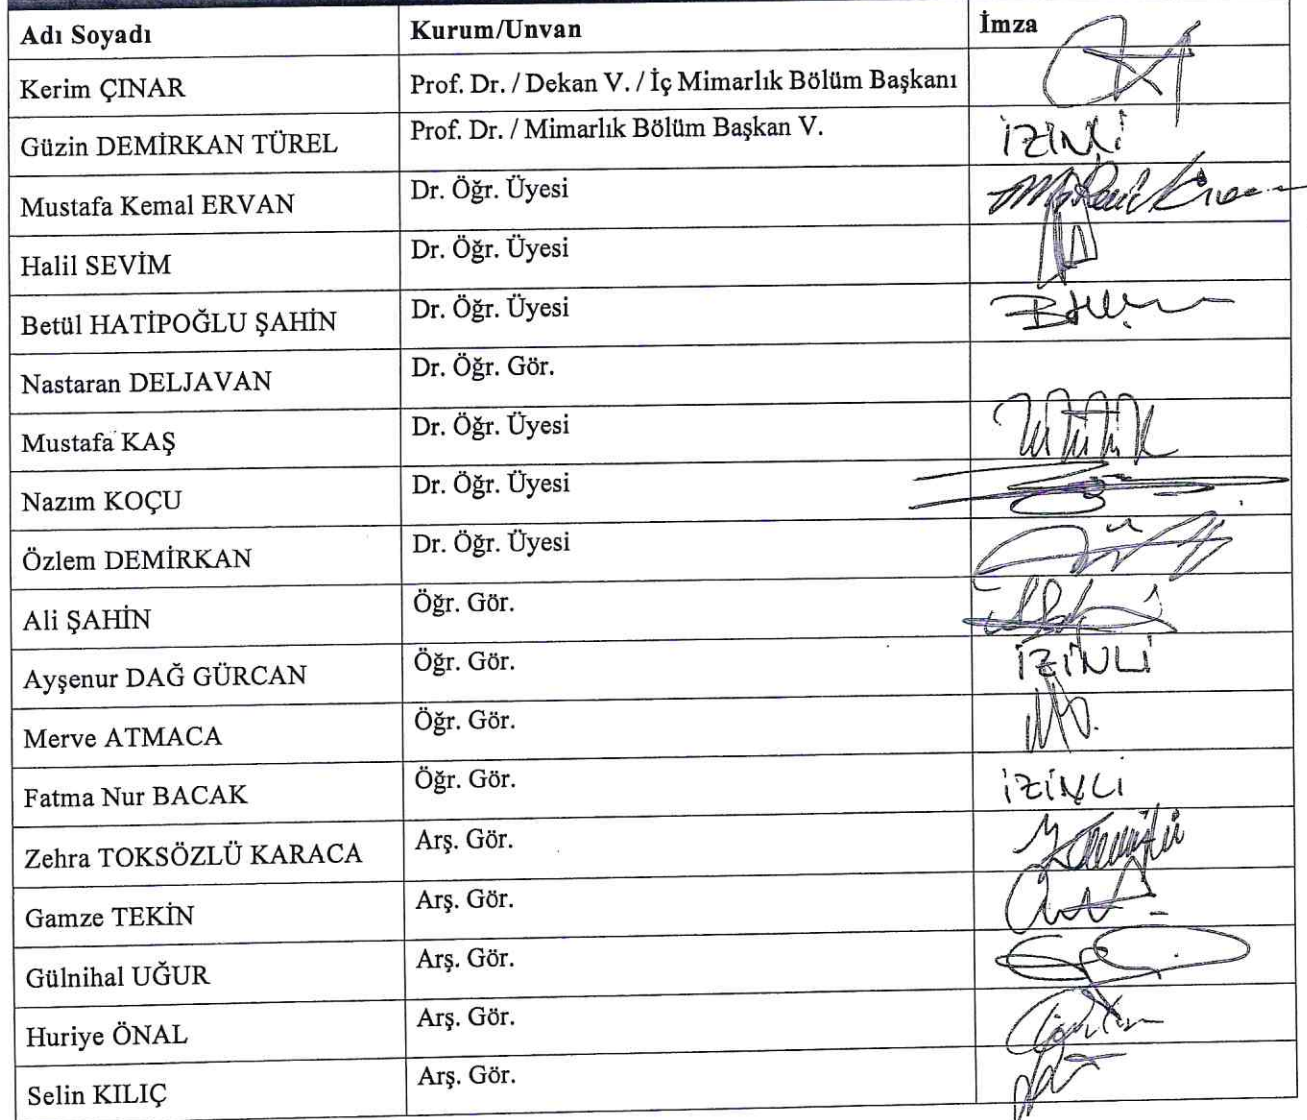 Adı Soyadı Kurum/Unvan İmza
Kerim ÇINAR Prof. Dr. / Dekan V. / İç Mimarlık Bölüm Başkanı
Güzin DEMİRKAN TÜREL Prof. Dr. / Mimarlık Bölüm Başkan V. İZİNLİ
Mustafa Kemal ERVAN Dr. Öğr. Üyesi
Halil SEVİM Dr. Öğr. Üyesi
Betül HATİPOĞLU ŞAHİN Dr. Öğr. Üyesi
Nastaran DELJAVAN Dr. Öğr. Gör.
Mustafa KAŞ Dr. Öğr. Üyesi
Nazım KOÇU Dr. Öğr. Üyesi
Özlem DEMİRKAN Dr. Öğr. Üyesi
Ali ŞAHİN Öğr. Gör.
Ayşenur DAĞ GÜRCAN Öğr. Gör. İZİNLİ
Merve ATMACA Öğr. Gör.
Fatma Nur BACAK Öğr. Gör. İZİNLİ
Zehra TOKSÖZLÜ KARACA Arş. Gör.
Gamze TEKİN Arş. Gör.
Gülnihal UĞUR Arş. Gör.
Huriye ÖNAL Arş. Gör.
Selin KILIÇ Arş. Gör.